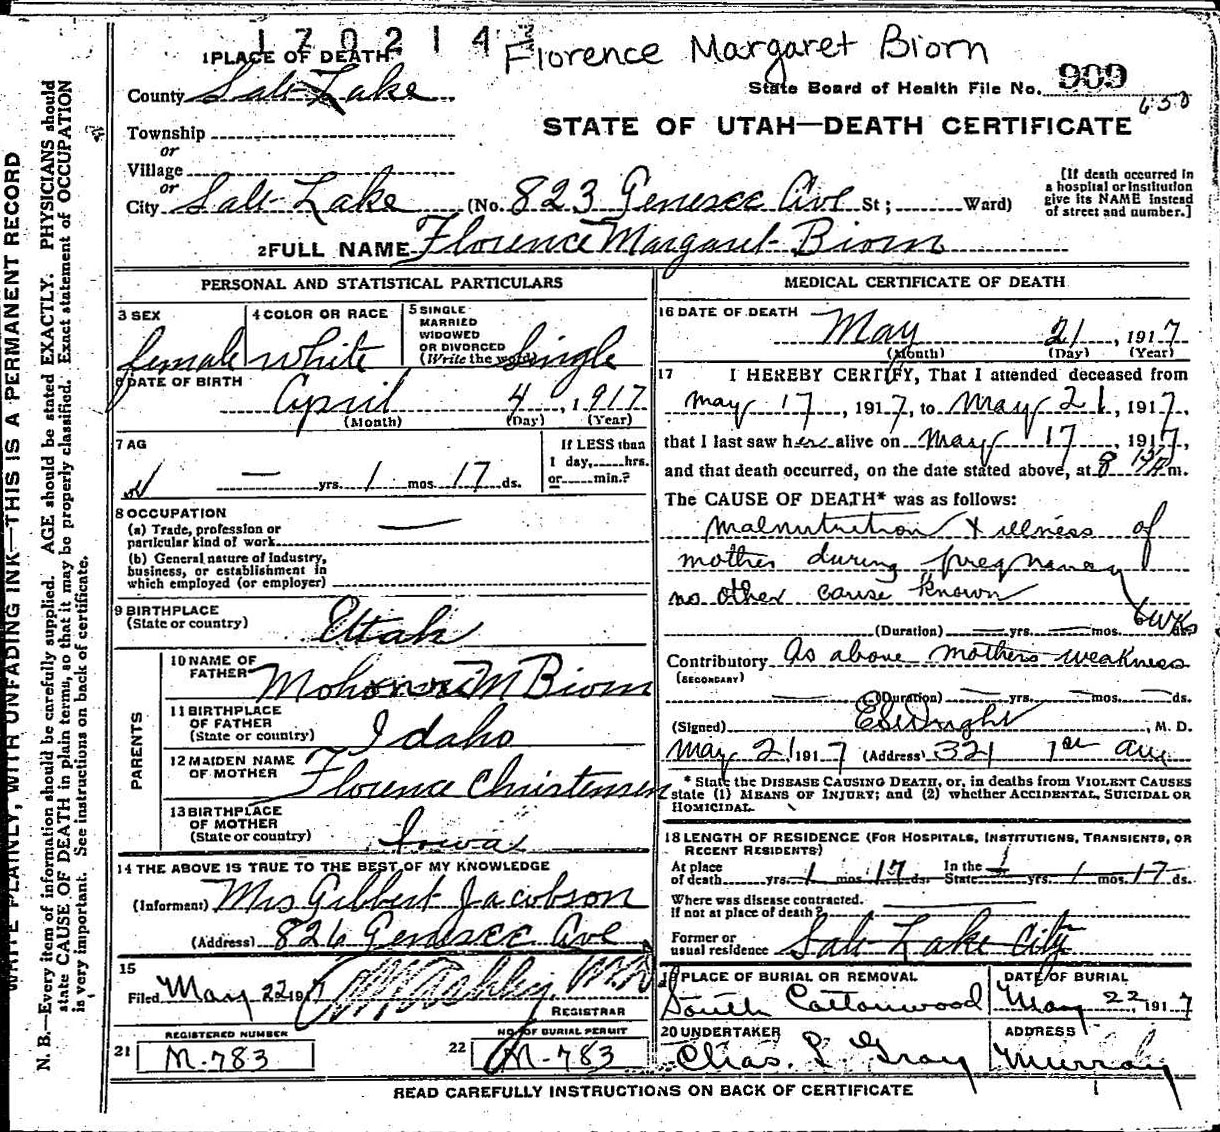 170214
Florence Margaret Biorn
1 PLACE OF DEATH
County Salt Lake
State Board of Health File No. 909
650
STATE OF UTAH—DEATH CERTIFICATE
Township
or
Village
or
City Salt Lake (No. 823 Genesee Ave St; Ward)
[If death occurred in
a hospital or institution
give its NAME instead
of street and number.]
2 FULL NAME Florence Margaret Biorn
PERSONAL AND STATISTICAL PARTICULARS
3 SEX
female
4 COLOR OR RACE
white
5 SINGLE
MARRIED
WIDOWED
OR DIVORCED
(Write the word) Single
6 DATE OF BIRTH
April 4, 1917
(Month) (Day) (Year)
7 AG
— yrs. 1 mos. 17 ds.
If LESS than
1 day, hrs.
or min.?
8 OCCUPATION
(a) Trade, profession or
particular kind of work —
(b) General nature of industry,
business, or establishment in
which employed (or employer)
9 BIRTHPLACE
(State or country) Utah
PARENTS
10 NAME OF
FATHER M Biorn
11 BIRTHPLACE
OF FATHER
(State or country) Idaho
12 MAIDEN NAME
OF MOTHER Florence Christensen
13 BIRTHPLACE
OF MOTHER
(State or country) Iowa
14 THE ABOVE IS TRUE TO THE BEST OF MY KNOWLEDGE
(Informant) Mrs Gilbert Jacobson
(Address) 826 Genesee Ave
15
Filed May 22 1917
REGISTRAR
REGISTERED NUMBER
21 M-783
NO. OF BURIAL PERMIT
22 M-783
MEDICAL CERTIFICATE OF DEATH
16 DATE OF DEATH May 21, 1917
(Month) (Day) (Year)
17 I HEREBY CERTIFY, That I attended deceased from
May 17, 1917, to May 21, 1917,
that I last saw her alive on May 17, 1917,
and that death occurred, on the date stated above, at 8 m.
The CAUSE OF DEATH* was as follows:
Malnutrition & illness of
mother during pregnancy
no other cause known
(Duration) — yrs. — mos. 6 wks ds
Contributory As above mothers weakness
(SECONDARY)
(Duration) — yrs. — mos. — ds.
(Signed) E S Wright, M. D.
May 21 1917 (Address) 321 1st Ave
* State the DISEASE CAUSING DEATH, or, in deaths from VIOLENT CAUSES
state (1) MEANS OF INJURY; and (2) whether ACCIDENTAL, SUICIDAL OR
HOMICIDAL.
18 LENGTH OF RESIDENCE (FOR HOSPITALS, INSTITUTIONS, TRANSIENTS, OR
RECENT RESIDENTS)
At place
of death yrs. 1 mos. 17 ds. In the
State yrs. 1 mos. 17 ds.
Where was disease contracted.
If not at place of death?
Former or
usual residence Salt Lake City
19 PLACE OF BURIAL OR REMOVAL
South Cottonwood
DATE OF BURIAL
May 22, 1917
20 UNDERTAKER
Chas. S. Gray
ADDRESS
Murray
READ CAREFULLY INSTRUCTIONS ON BACK OF CERTIFICATE
WRITE PLAINLY, WITH UNFADING INK—THIS IS A PERMANENT RECORD
N. B.—Every item of information should be carefully supplied. AGE should be stated EXACTLY. PHYSICIANS should
state CAUSE OF DEATH in plain terms, so that it may be properly classified. Exact statement of OCCUPATION
is very important. See instructions on back of certificate.